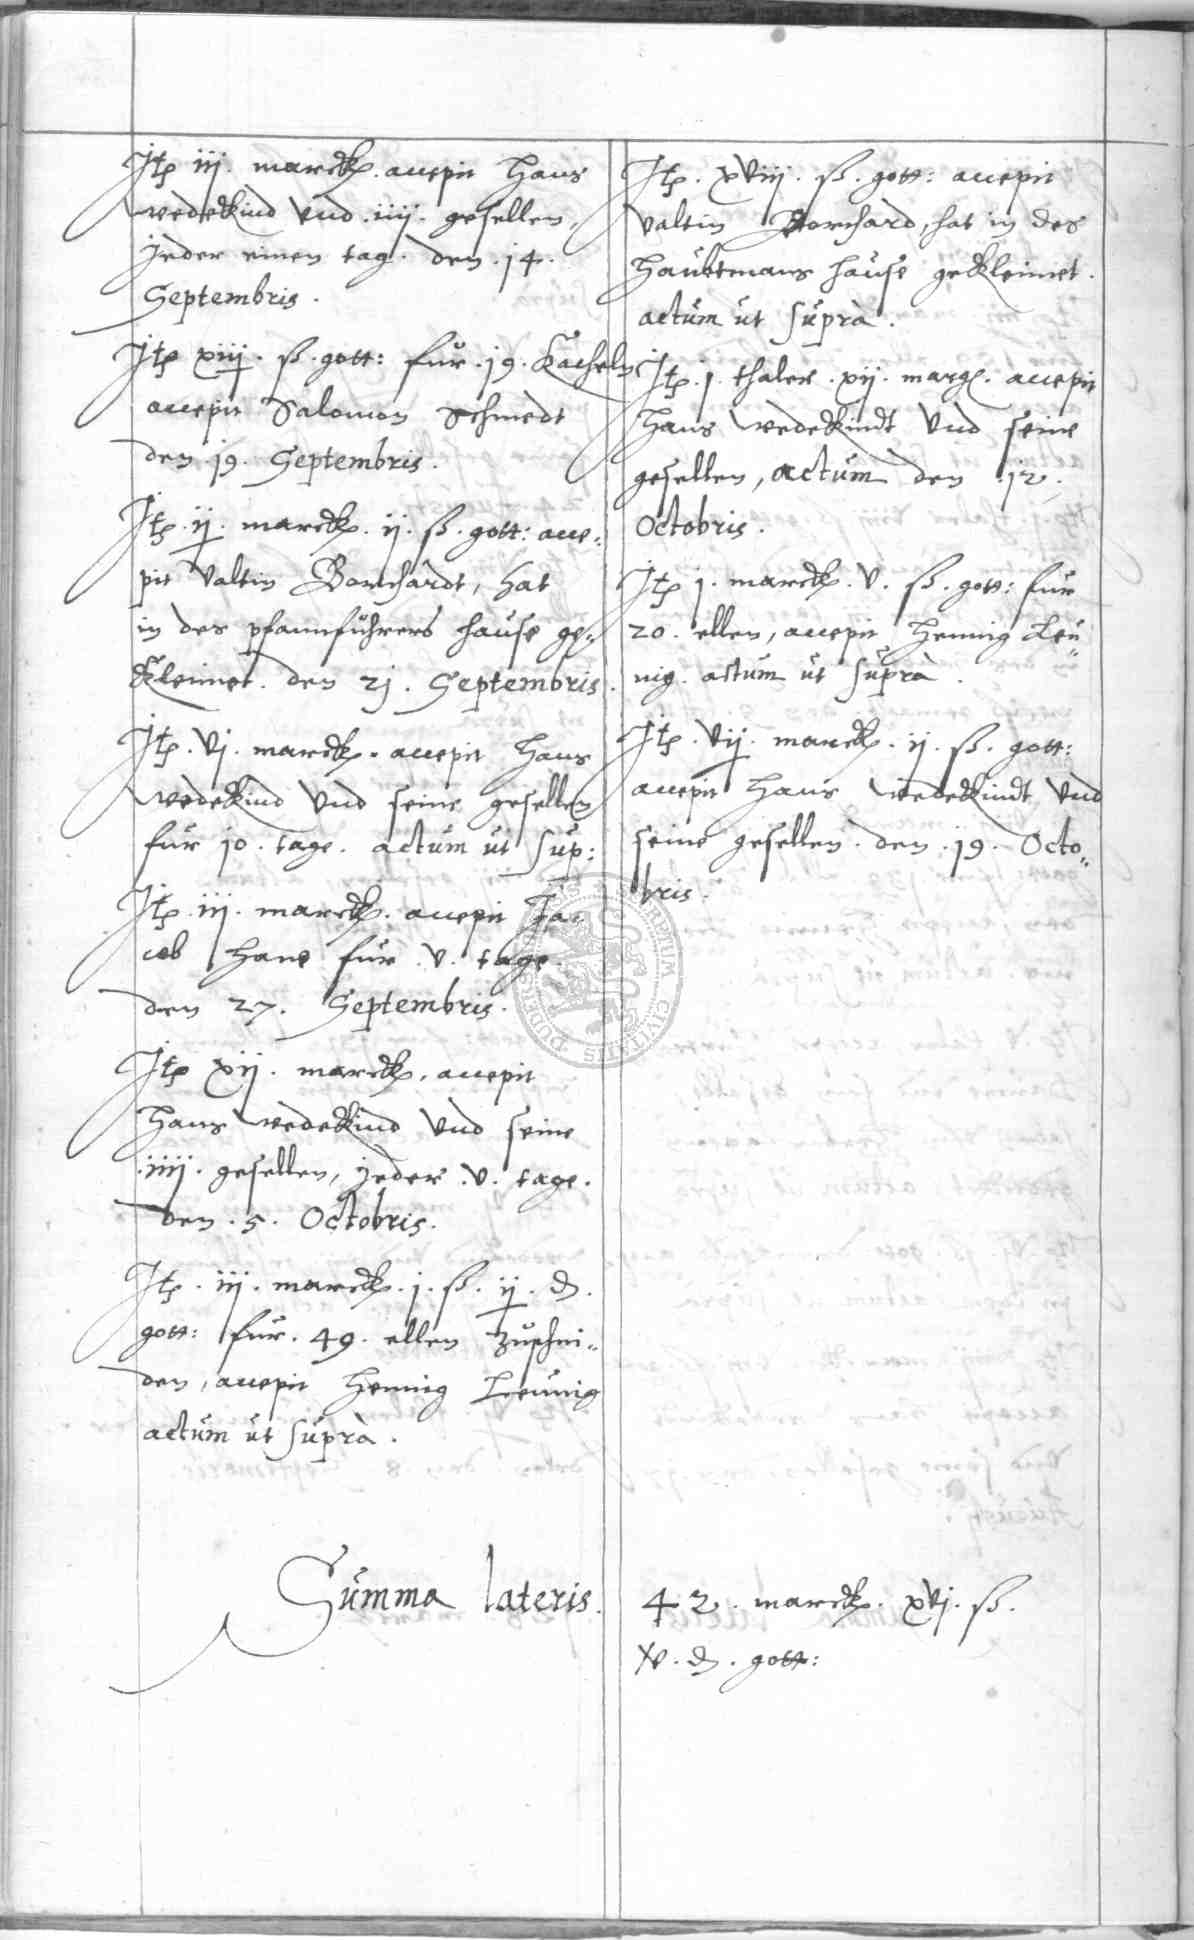 Jtp iij. marck. accepit Hans
wedekind vnd .iiij. gesellen,
jeder einen tag. den .14.
Septembris.
Jtp xiij. ß. gott: fur .19. Kacheln
accepit Salomon Schmedt
den 19. Septembris.
Jtp .ij. marck. ij. ß. gott: acce=
pit Valtin Borchardt, hat
in des pfannführers hause ge=
kleimet. den 21. Septembris.
Jtp .vj. marck. accepit Hans
wedekind vnd seine gesellen
fur 10. tage. actum ut sup:
Jtp .iij. marck. accepit Ja=
cob Hane fur .v. tage.
den 27. Septembris.
Jtp xij. marck, accepit
Hans wedekind vnd seine
.iiij. gesellen, jeder .v. tage.
den .5. Octobris.
Jtp. iij. marck. j. ß. ij. d.
gott: fur. 49. ellen zuschni=
den, accepit Hennig Leunig
actum ut suprà.
Jtp. xviij. ß. gott: accepit
Valtin Borchard, hat in des
Haubtmans hause gekleimet.
actum ut suprà.
Jtp. j. thaler. xij. marg. accepit
Hans wedekindt vnd seine
gesellen, actum den .12.
Octobris.
Jtp j. marck. v. ß. gott: fur
20. ellen, accepit Hennig Leu=
nig. actum ut suprà.
Jtp. vij. marck. ij. ß. gott:
accepit Hans wedekindt vnd
seine gesellen. den .19. Octo=
bris.
Summa lateris. 42. marck. xvj. ß.
. d. gott:
SECRETUM CIVITATIS DUDERS